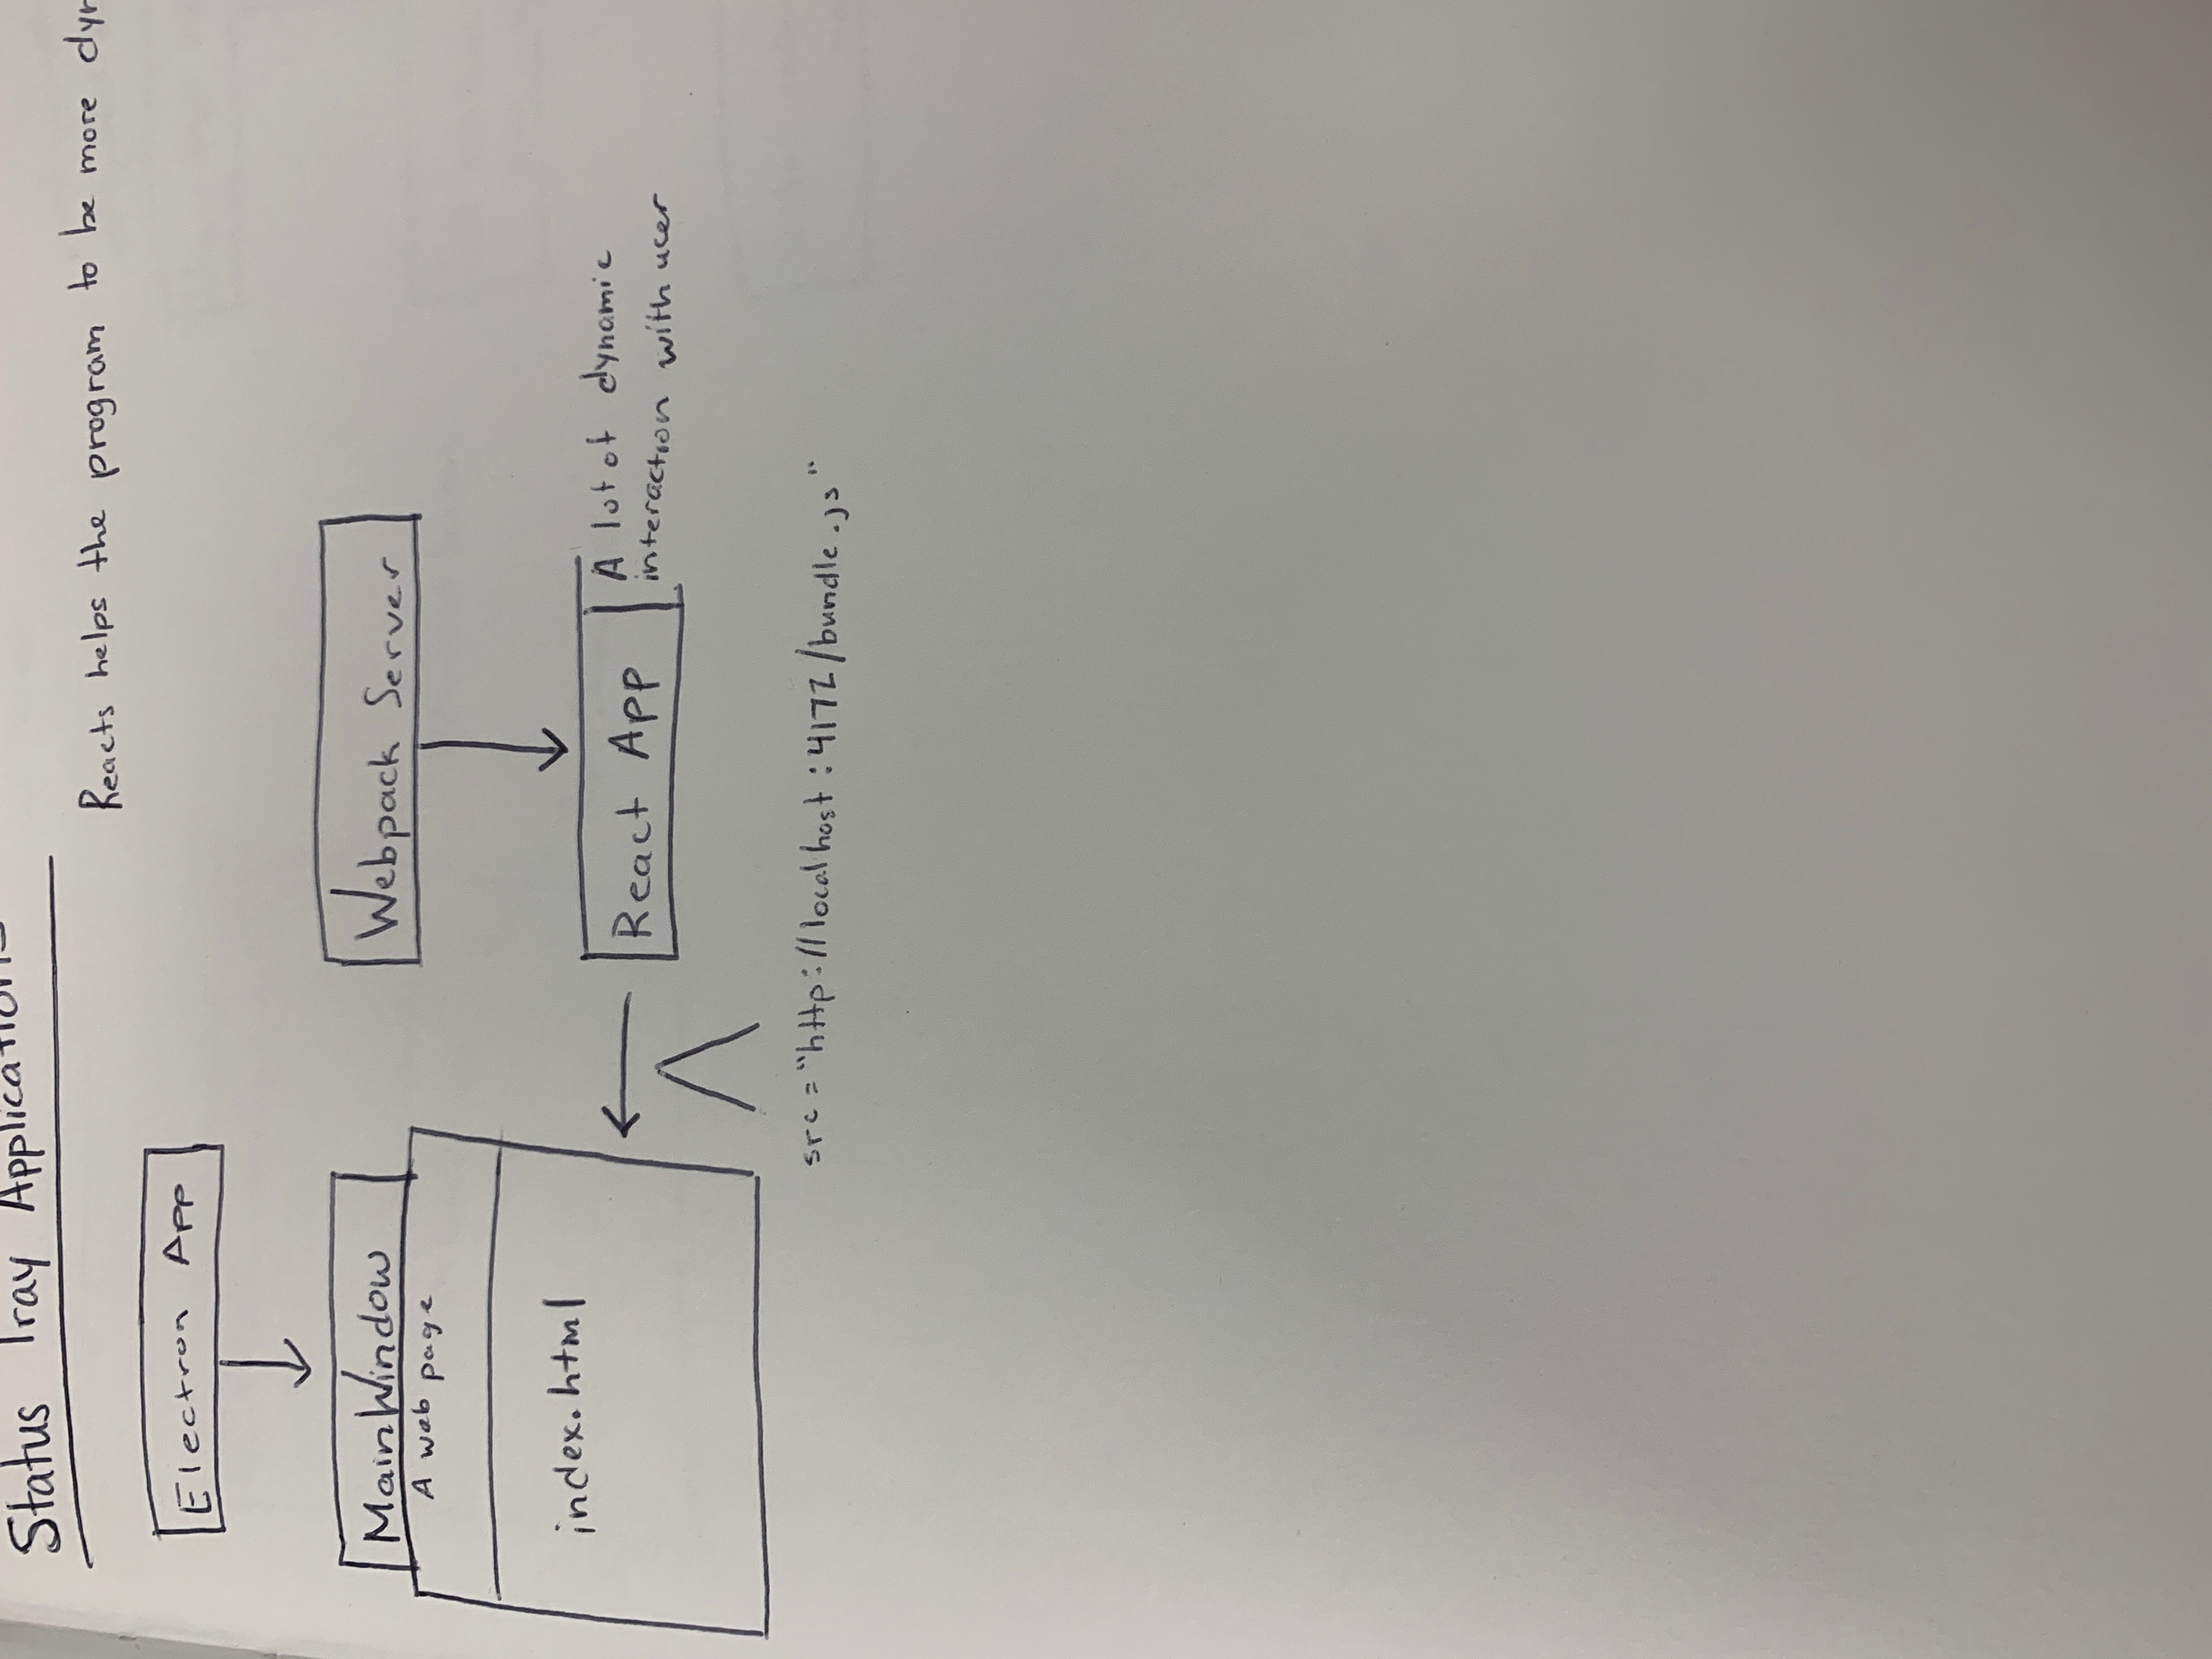 Status Tray Applications
Reacts helps the program to be more
Electron App
MainWindow
A web page
index.html
Webpack Server
React App
A lot of dynamic
interaction with user
src = "http://localhost:4172/bundle.js"